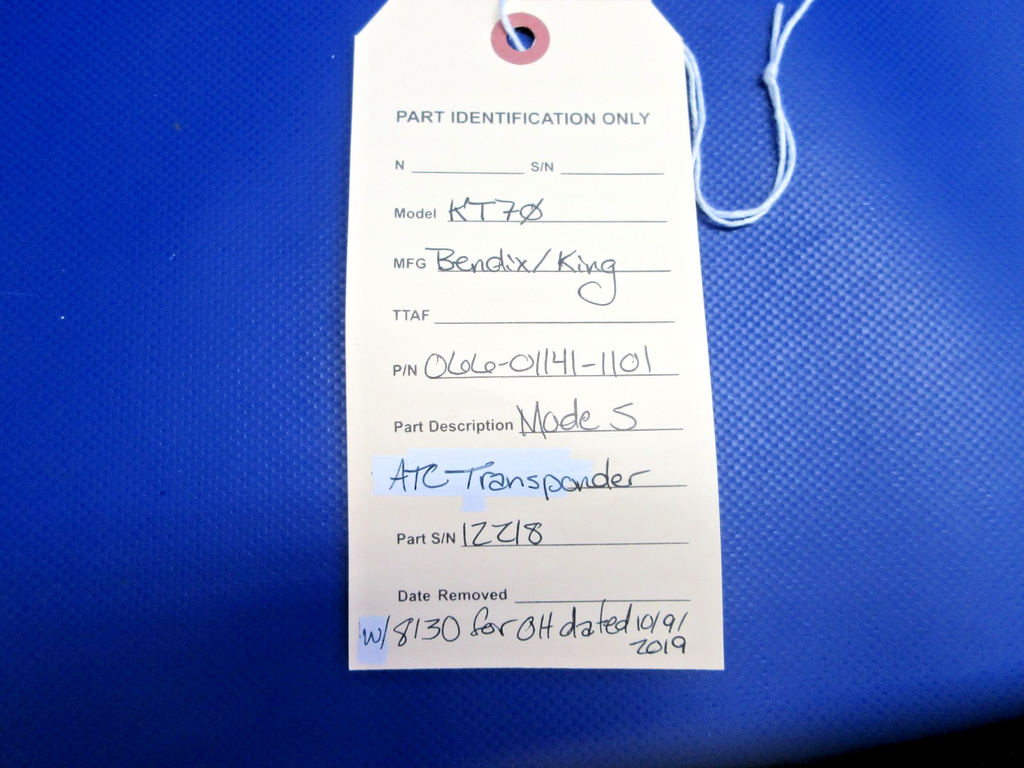 PART IDENTIFICATION ONLY
N S/N
Model KT7Ø
MFG Bendix/King
TTAF
P/N 066-01141-1101
Part Description Mode S
ATC-Transponder
Part S/N 12218
Date Removed
w/ 8130 for OH dated 10/9/
2019